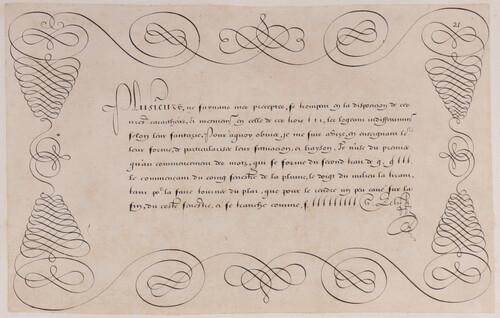 21
Plusieurs, ne suyvans mes preceptes, se trompent en la disposition de ces
mes caracteres, & mesmement en celle de ces trois l l l, les logeant indifferemment
selon leur fantazie, Pour aquoy obvier, je me suis advizé, en enseignant
leur forme, de particularizer leur situation, & liayson. Je n'uze du premier
qu'au commencement des mots, qui se forme du second tran de q, q l l l.
le commençant du coing senestre de la plume, le doigt du milieu la tirant,
tant por la faire tourner du plat, que pour le rendre un peu cavé sur la
fin, du costé senestre, & se tranche comme, s. l l l l l l l l l